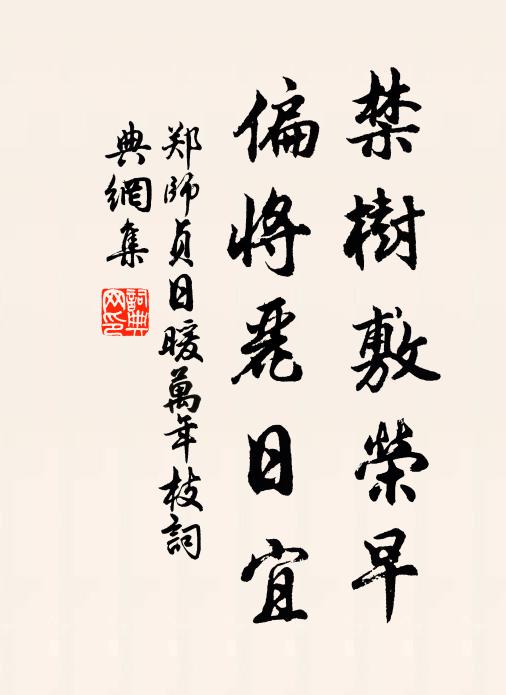 禁樹敷榮早
偏將麗日宜
郑師貞日暖萬年枝詞
典網集
詞典
网印